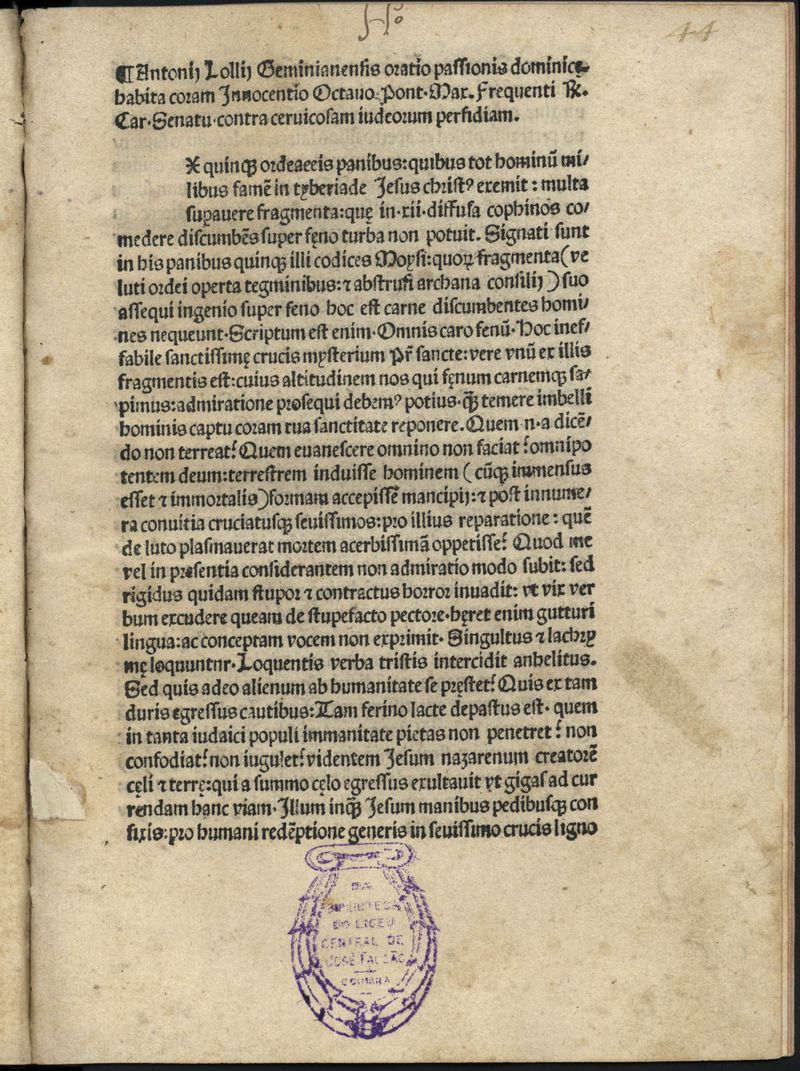 44
¶Antonij Lollij Geminianensis oratio passionis dominicę
habita coram Innocentio Octauo. Pont. Max. Frequenti R.
Car. Senatu. contra ceruicosam iudeorum perfidiam.
X quinqꝫ ordeaceis panibus: quibus tot hominū mi/
libus famē in tyberiade Jesus christꝰ exemit: multa
supauere fragmenta: quę in .xii. diffusa cophinos co/
medere discumbēs super fęno turba non potuit. Signati sunt
in his panibus quinqꝫ illi codices Moysi: quoꝝ fragmenta (ve
luti ordei operta tegminibus: ⁊ abstrusi archana consilij) suo
assequi ingenio super feno hoc est carne discumbentes homi/
nes nequeunt. Scriptum est enim. Omnis caro fenū. Hoc inef/
fabile sanctissimę crucis mysterium Pr̄ sancte: vere vnū ex illis
fragmentis est: cuius altitudinem nos qui fęnum carnemqꝫ sa/
pimus: admiratione prosequi debemꝰ potius. qꝫ̄ temere imbelli
hominis captu coram tua sanctitate reponere. Quem .n. a dicē/
do non terreat? Quem euanescere omnino non faciat? omnipo
tentem deum: terrestrem induisse hominem (cūqꝫ immensus
esset ⁊ immortalis) formam accepissē mancipij: ⁊ post innume/
ra conuitia cruciatusqꝫ seuissimos: pro illius reparatione: quē
de luto plasmauerat mortem acerbissimā oppetisse? Quod me
vel in presentia considerantem non admiratio modo subit: sed
rigidus quidam stupor ⁊ contractus horror inuadit: vt vix ver
bum excudere queam de stupefacto pectore. hęret enim gutturi
lingua: ac conceptam vocem non exprimit. Singultus ⁊ lachry
mę loquuntnr. Loquentis verba tristis intercidit anhelitus.
Sed quis adeo alienum ab humanitate se pręstet? Quis ex tam
duris egressus cautibus: Tam ferino lacte depastus est. quem
in tanta iudaici populi immanitate pietas non penetret? non
confodiat? non iugulet? videntem Jesum nazarenum creatorē
cęli ⁊ terrę: qui a summo cęlo egressus exultauit vt gigas ad cur
rendam hanc viam. Illum inqꝫ̄ Jesum manibus pedibusqꝫ con
fixis: pro humani redēptione generis in seuissimo crucis ligno
DA
BIBLIOTECA
DO LICEU
CENTRAL DE
JOSÉ FALCÃO
COIMBRA